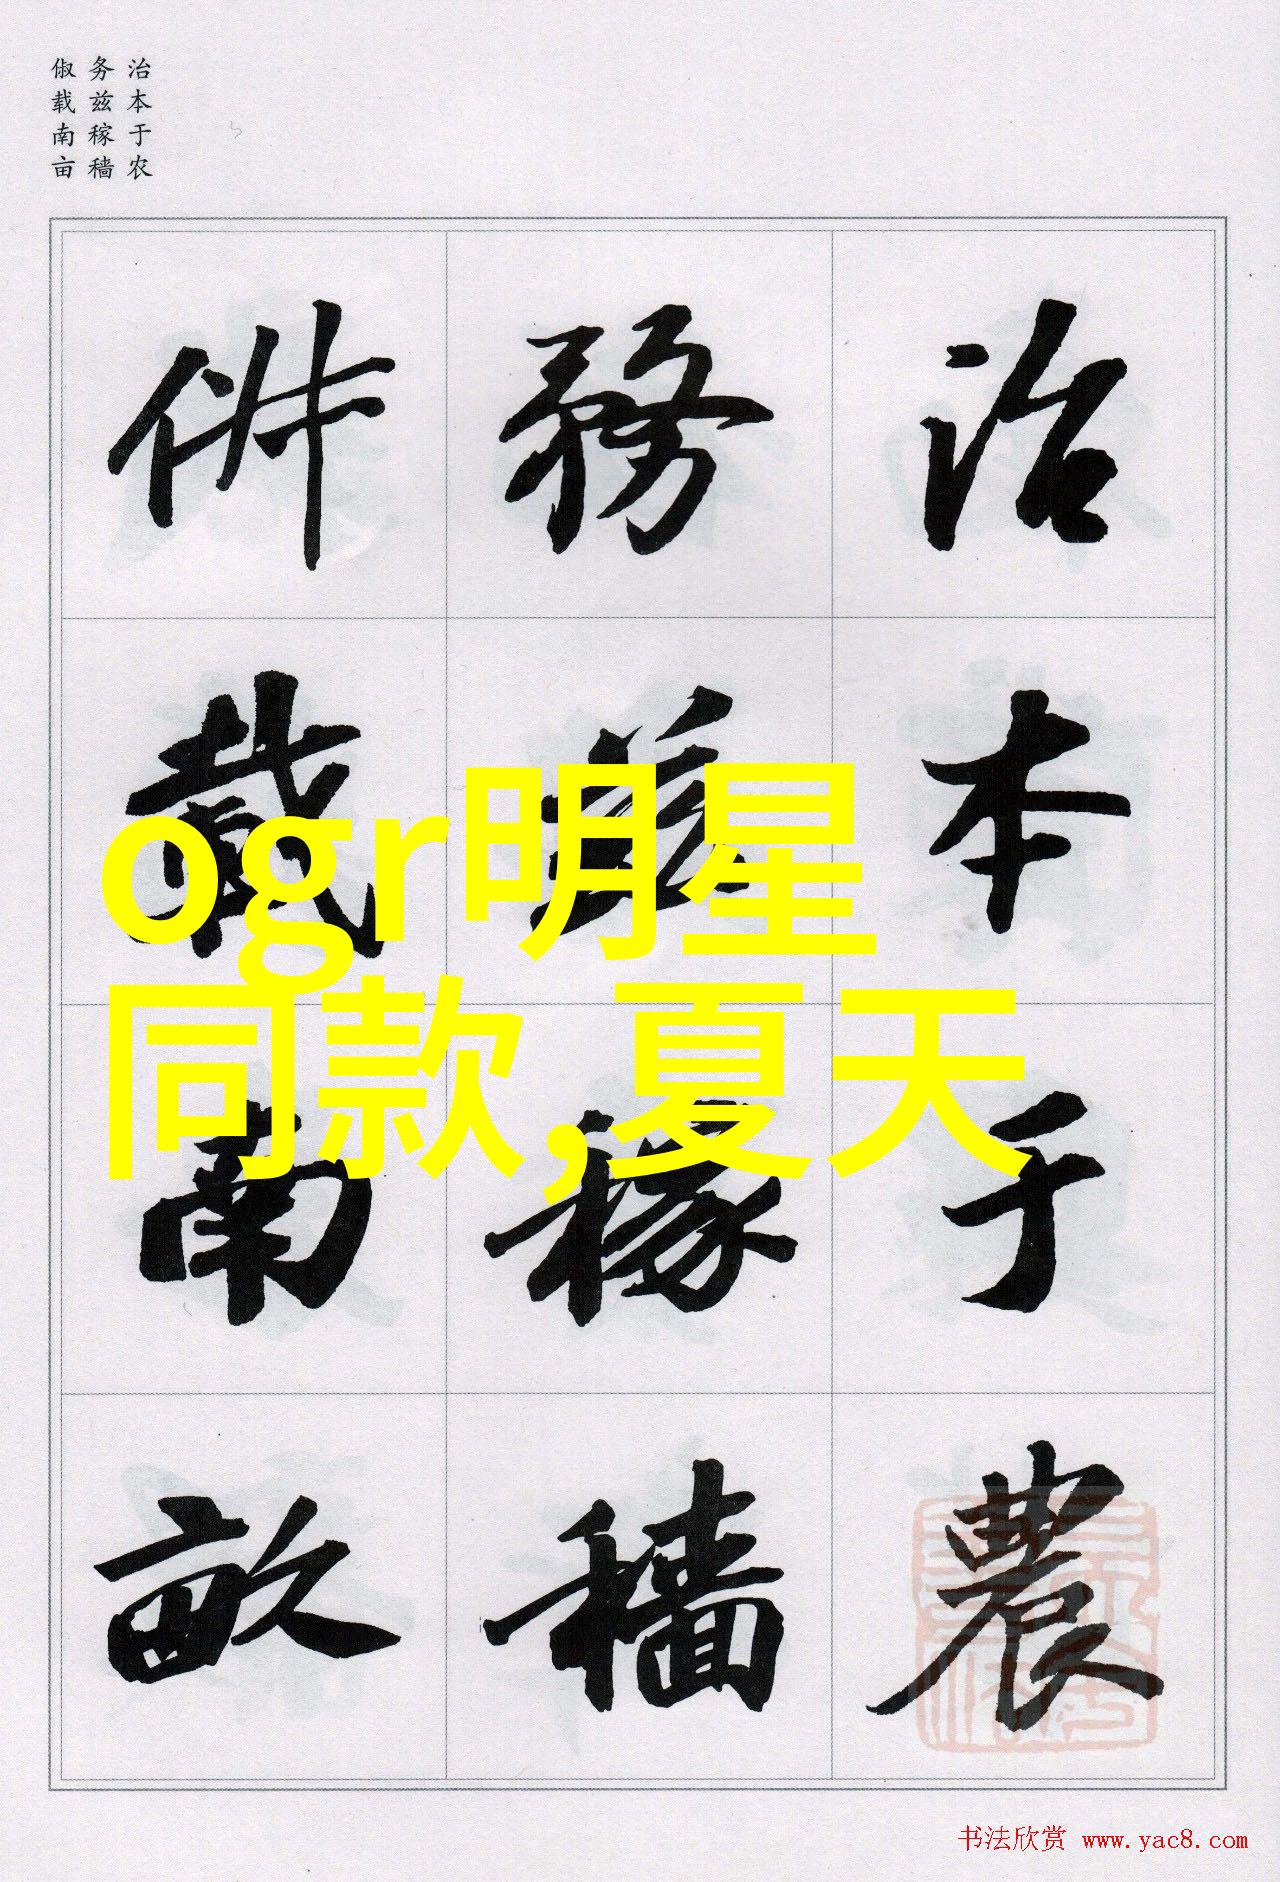 治本于农
务兹稼穑
俶载南亩
治本于農
務茲稼穡
俶載南畝
ogr明星
同款,夏天
书法欣赏 www.yac8.com